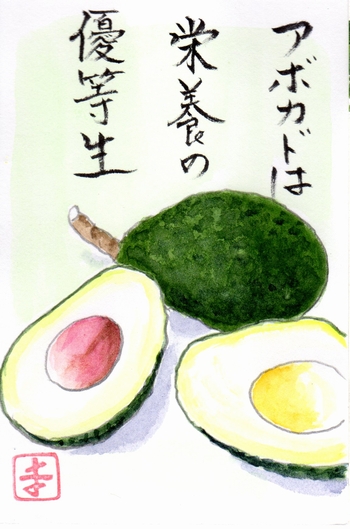 アボカドは
栄養の
優等生